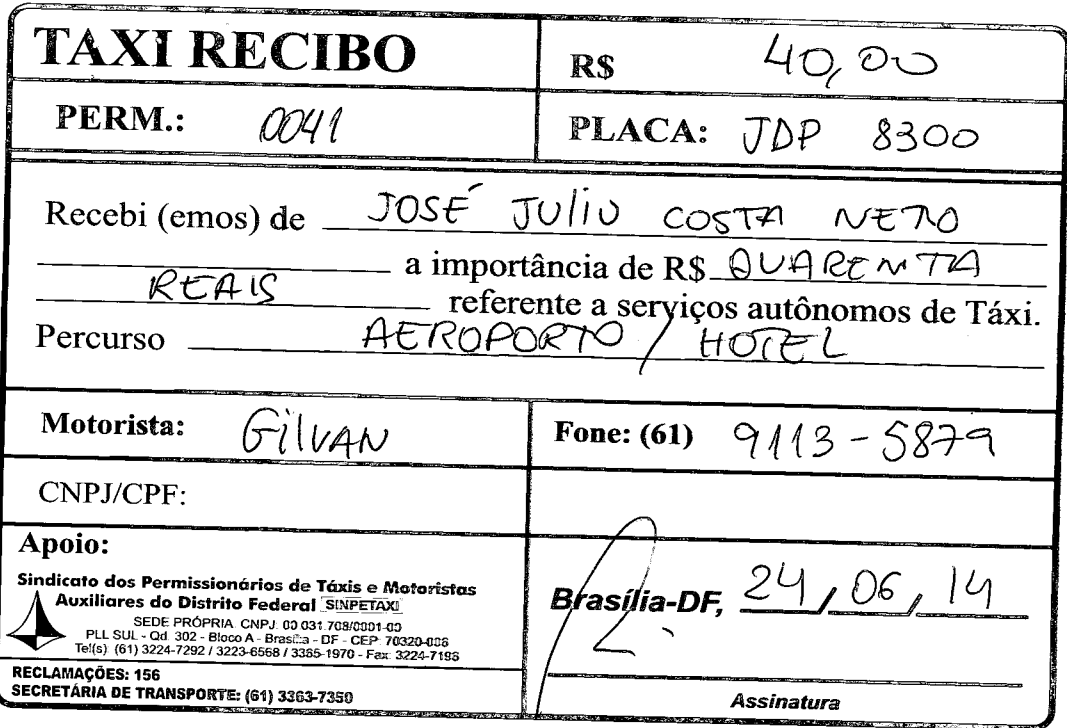 TAXI RECIBO
R$ 40,00
PERM.: 0041
PLACA: JDP 8300
Recebi (emos) de JOSÉ JULIO COSTA NETO
a importância de R$ QUARENTA
REAIS referente a serviços autônomos de Táxi.
Percurso AEROPORTO / HOTEL
Motorista: GILVAN
Fone: (61) 9113-5879
CNPJ/CPF:
Apoio:
Sindicato dos Permissionários de Táxis e Motoristas
Auxiliares do Distrito Federal SINPETAXI
SEDE PRÓPRIA CNPJ: 00.031.708/0001-00
PLL SUL - Qd. 302 - Bloco A - Brasília - DF - CEP: 70320-008
Tel(s): (61) 3224-7292 / 3223-6568 / 3385-1970 - Fax: 3224-7196
RECLAMAÇÕES: 156
SECRETÁRIA DE TRANSPORTE: (61) 3363-7350
Brasília-DF, 24/06/14
Assinatura